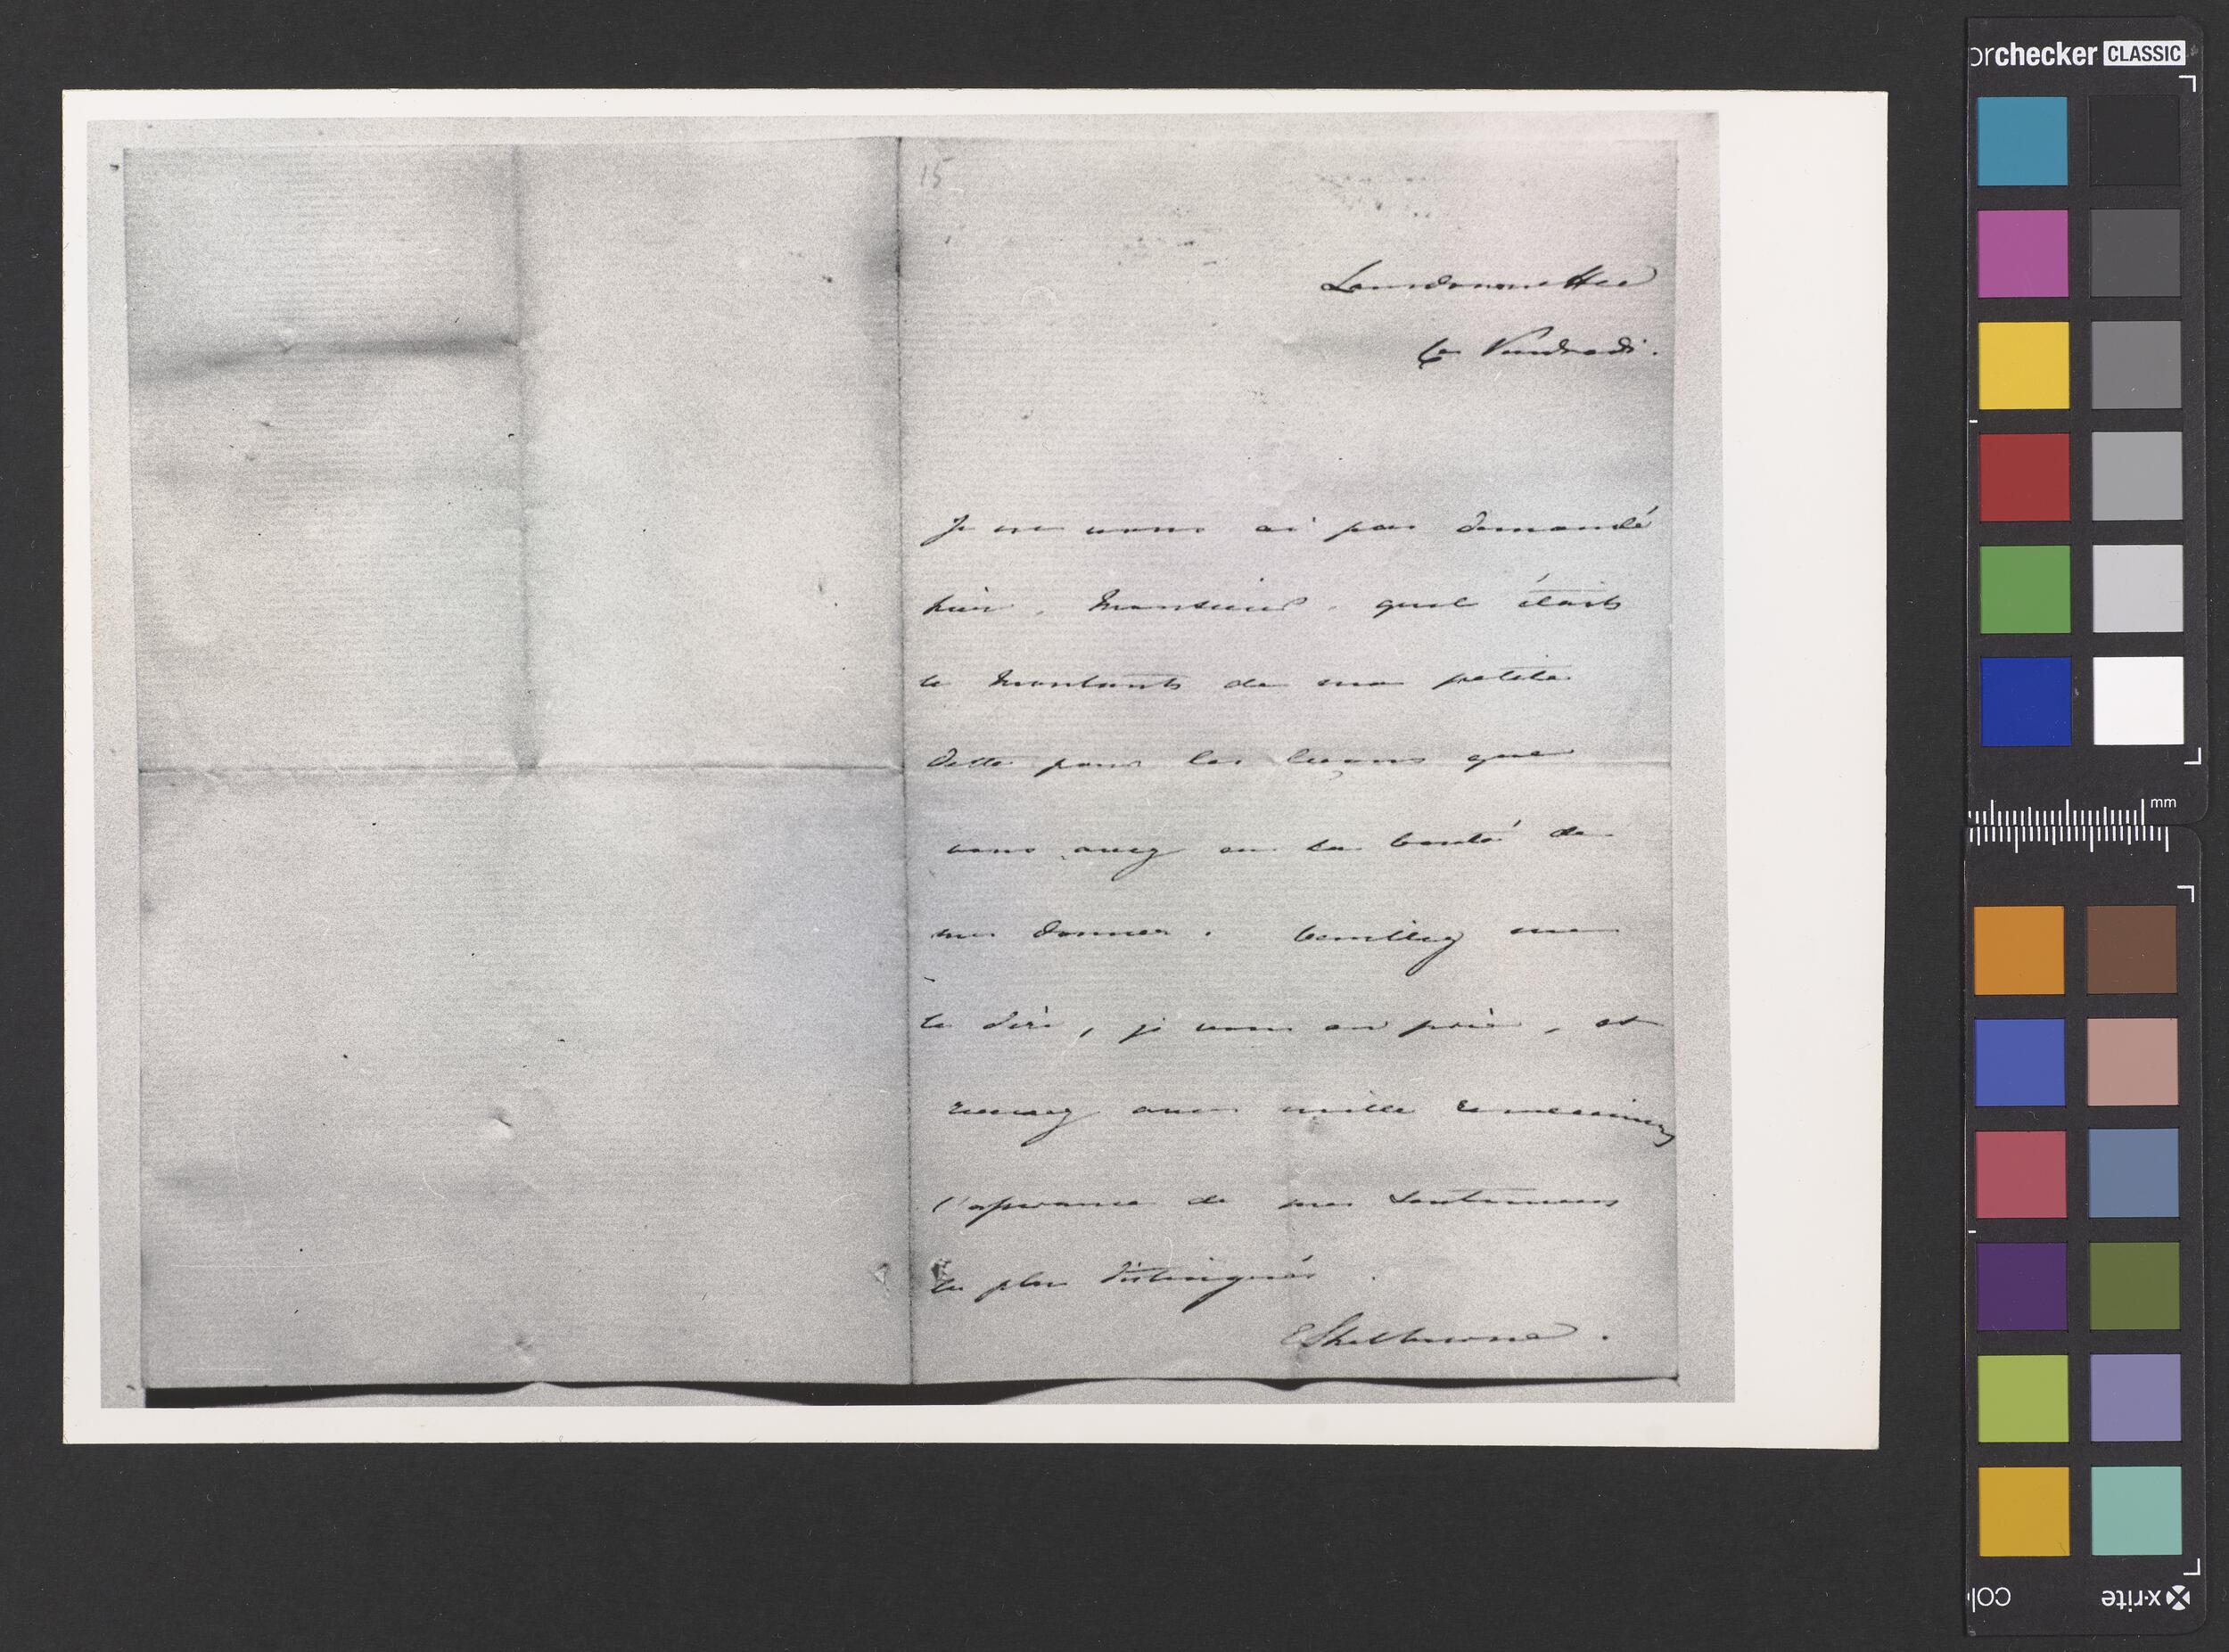 15
Lansdowne Hse
Ce Vendredi.
Je ne vous ai pas demandé
hier, Monsieur, quel était
le montant de ma petite
dette pour les leçons que
vous avez eu la bonté de
me donner. Veuillez me
le dire, je vous en prie, et
recevez avec mille remerciemens
l'assurance de mes sentimens
les plus distingués.
E Shelburne.
orchecker CLASSIC
mm
x-rite
colo